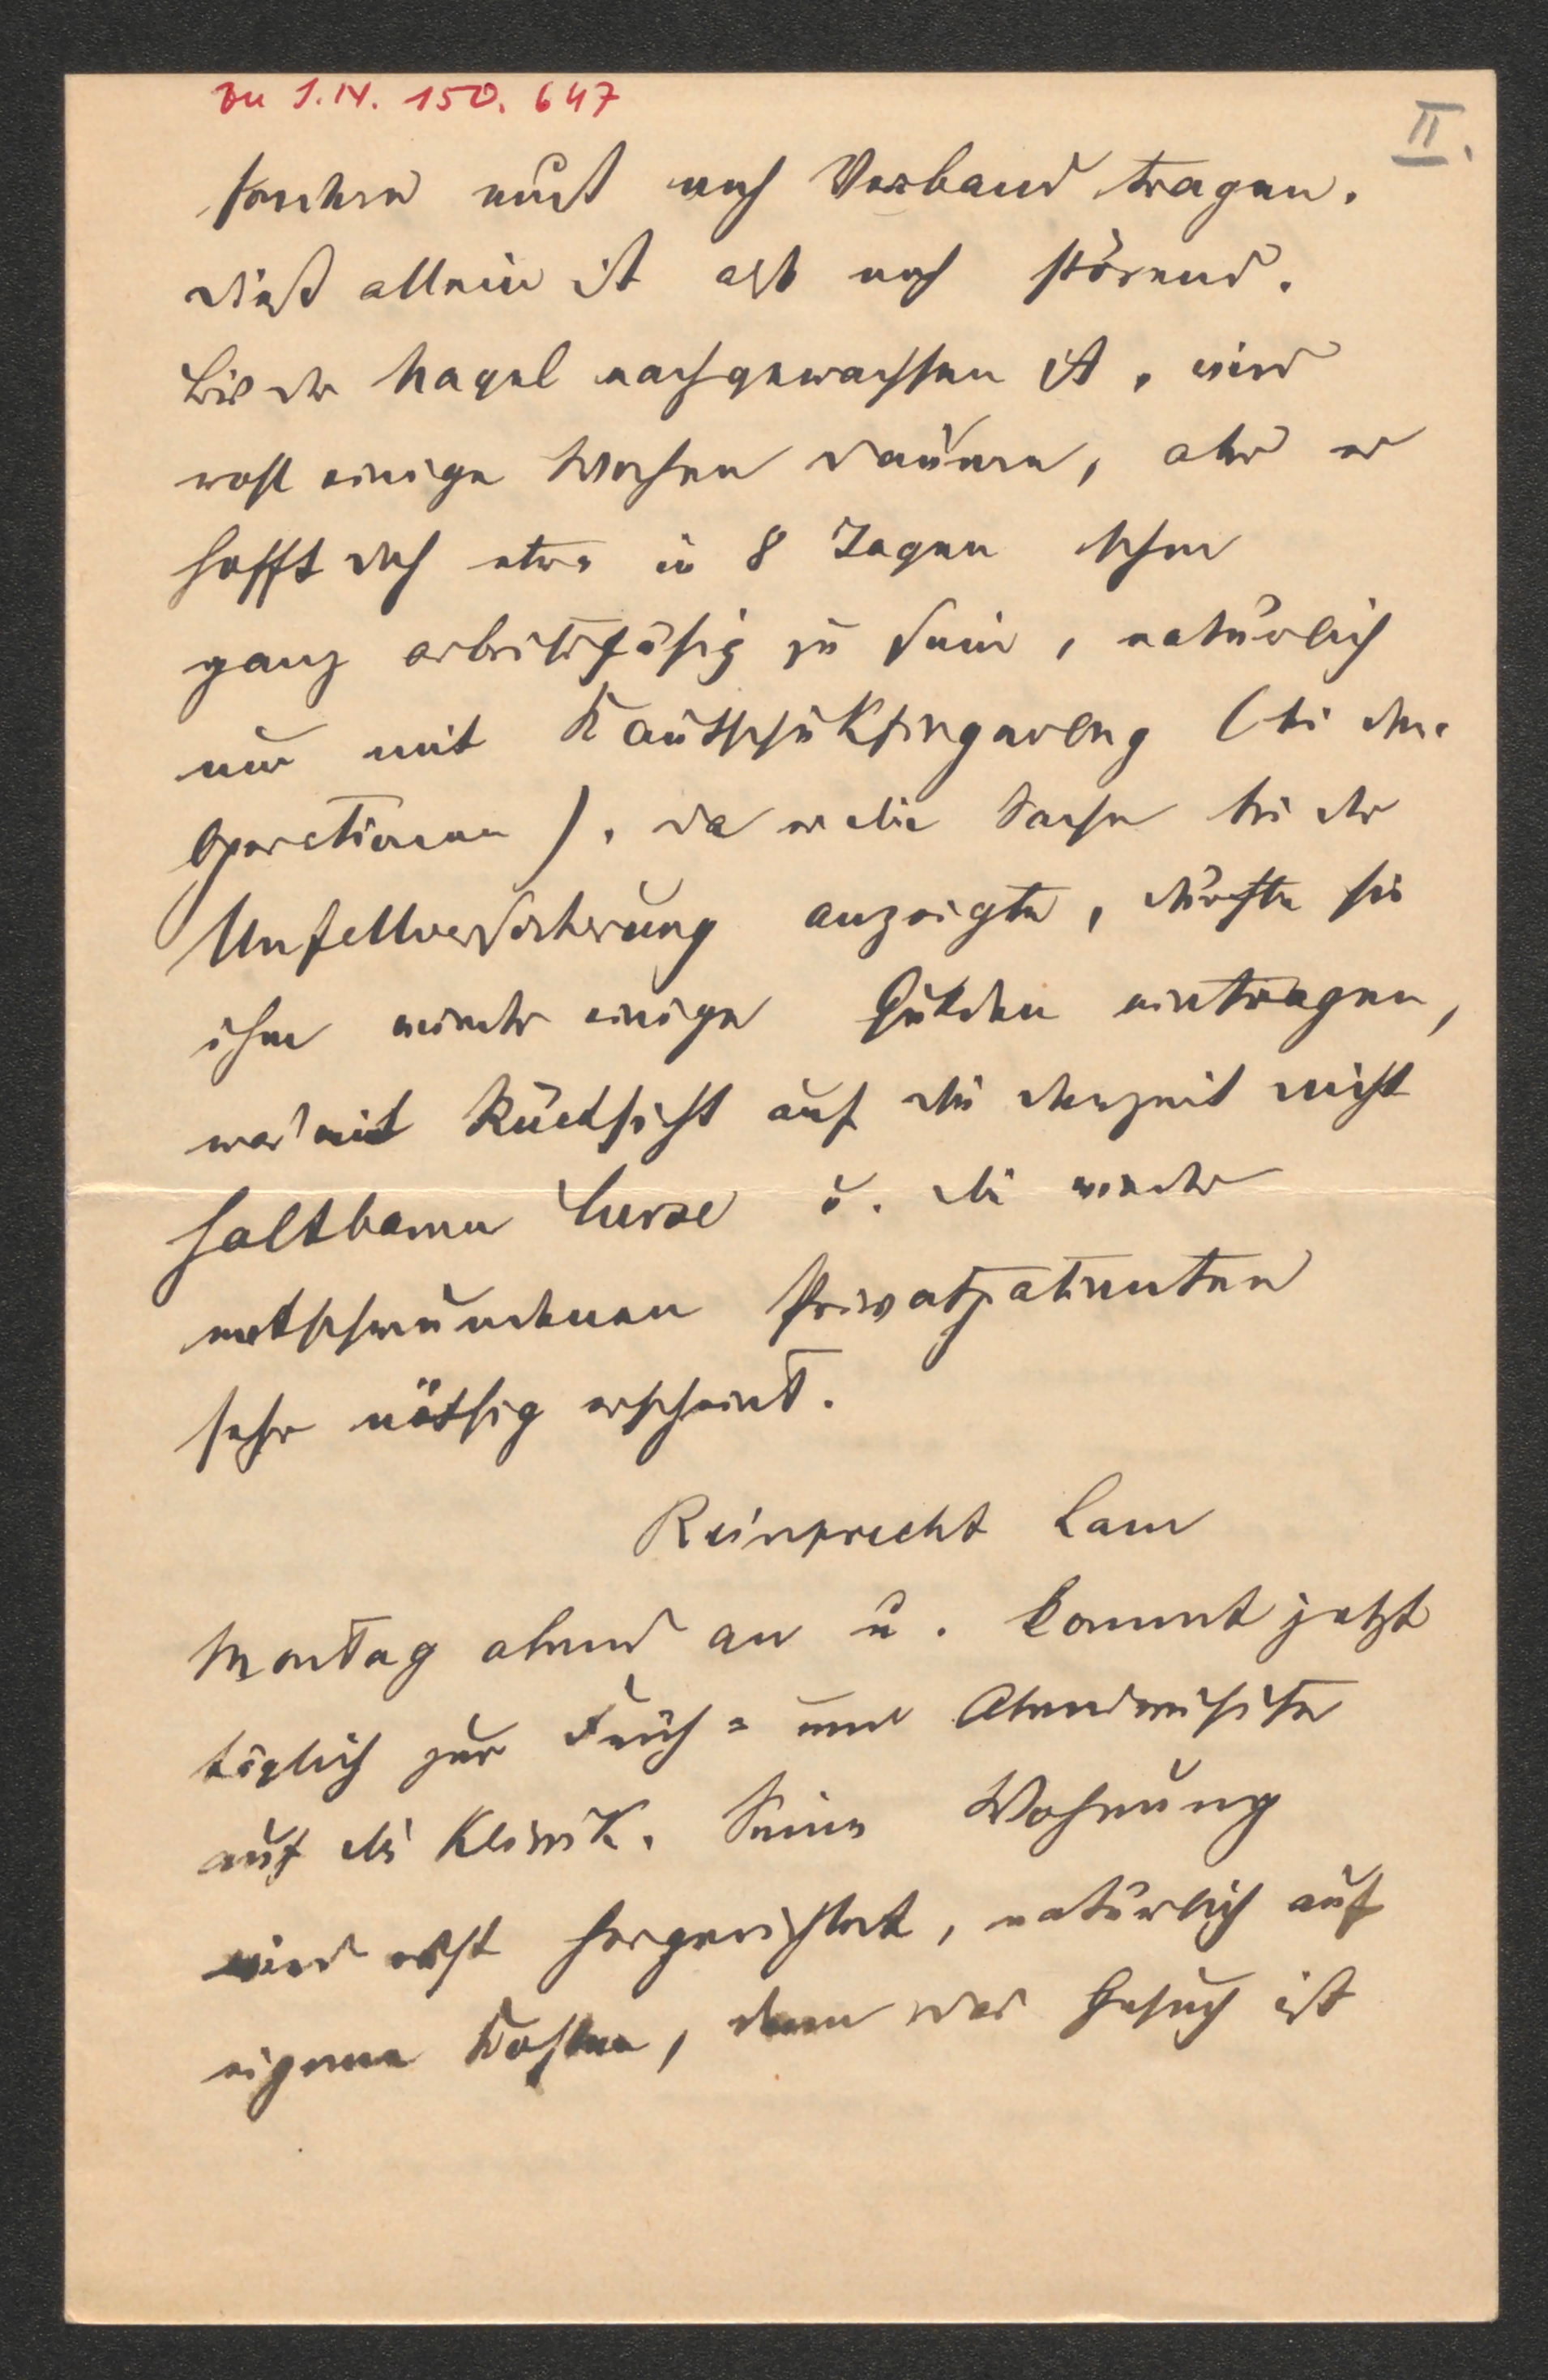 Zu 1.IV. 150. 647
II.
sondern muß noch Verband tragen.
Dieß allein ist noch störend.
Bis der Nagel nachgewachsen ist, wird
wohl einige Wochen dauern, aber er
hofft doch etwa in 8 Tagen schon
ganz arbeitsfähig zu sein, natürlich
nur mit Kautschukfingerling (bei den
Operationen). Da er die Sache bei der
Unfallversicherung anzeigte, dürfte sie
ihm wieder einige Gulden eintragen,
was mit Rücksicht auf die derzeit nicht
haltbaren Curse u. die wieder
entschwundenen Privatpatienten
sehr nöthig erscheint.
Reinprecht kam
Montag abend an u. kommt jetzt
täglich zur Früh= und Abendvisite
auf die Klinik. Seine Wohnung
wird erst hergerichtet, natürlich auf
eigene Kosten, denn das Gesuch ist